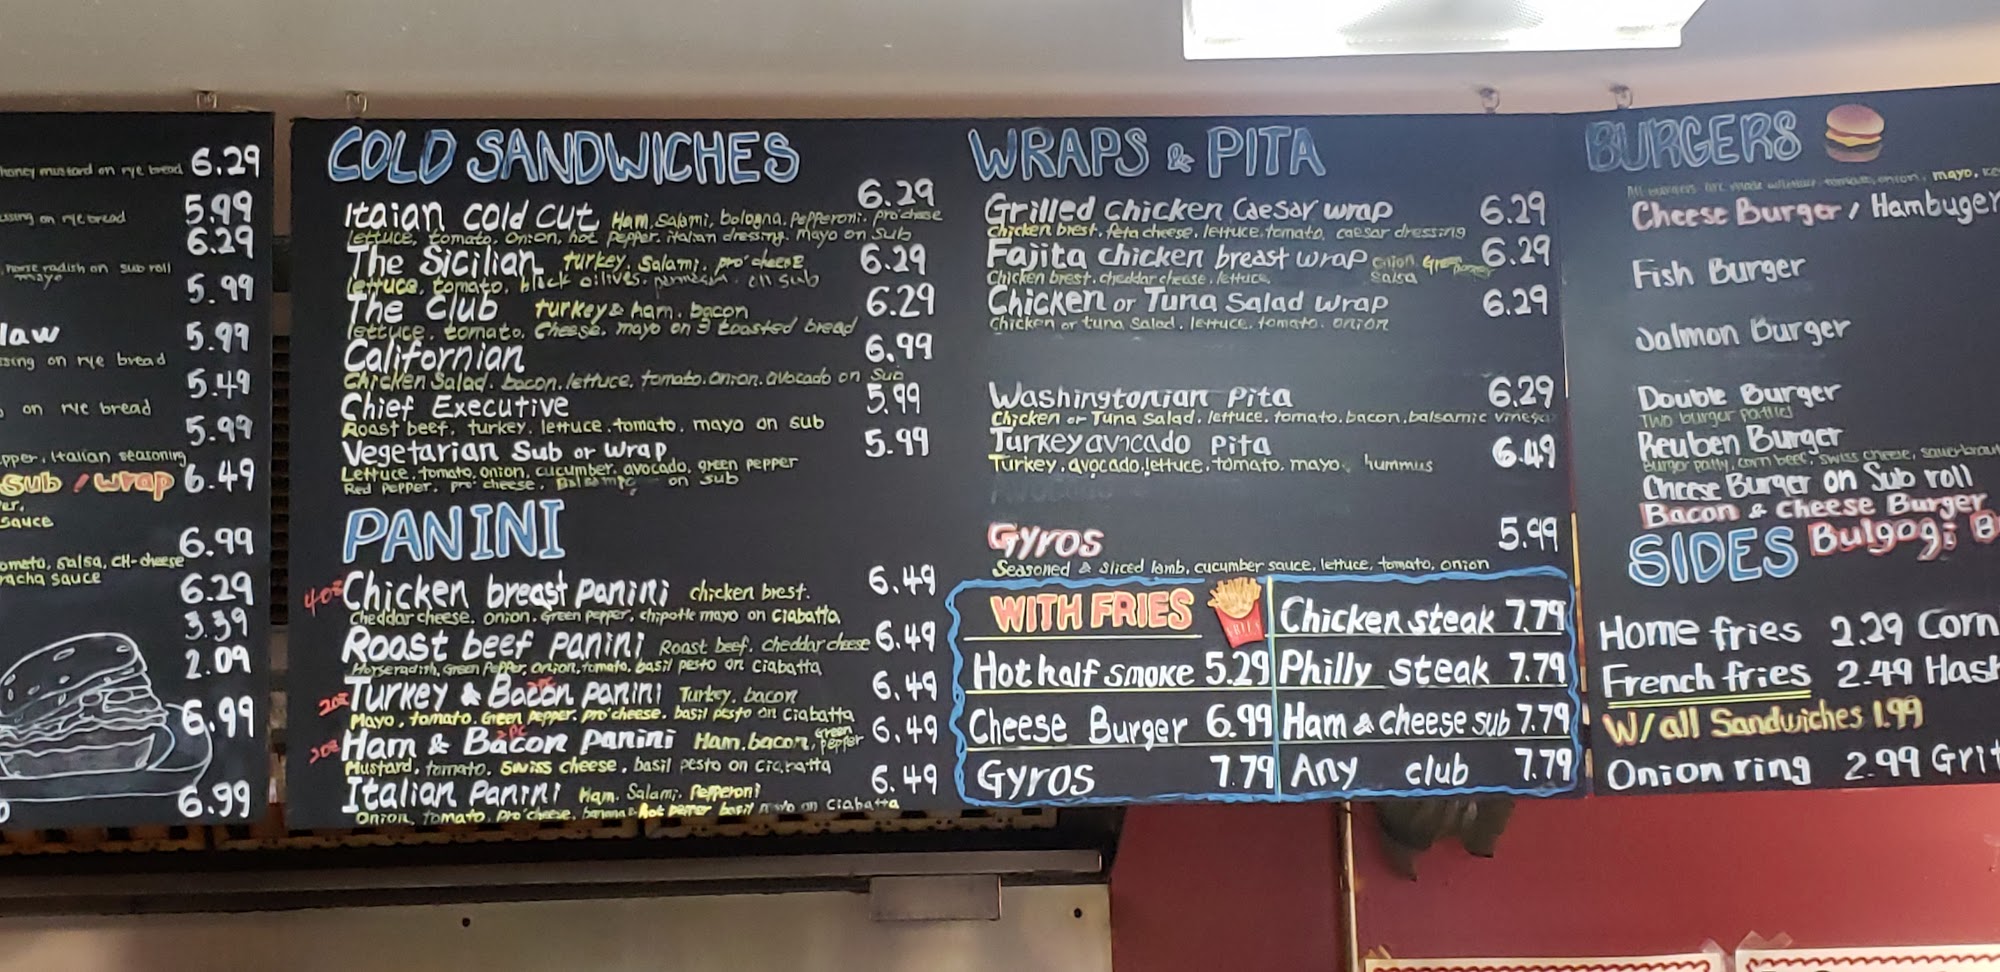 honey mustard on rye bread 6.29
on rye bread 5.99
6.29
horse radish on sub roll
mayo 5.99
law 5.99
ssing on rye bread
5.49
on rye bread
5.99
pper, Italian seasoning
sub / wrap 6.49
er,
sauce
6.99
omato, salsa, CH-cheese
racha sauce
6.29
3.39
2.09
6.99
6.99
COLD SANDWICHES
Itaian cold cut Ham, Salami, bologna, Pepperoni, pro'cheese 6.29
lettuce, tomato, onion, hot pepper, italian dressing, mayo on sub
The Sicilian turkey, Salami, pro'cheese 6.29
lettuce, tomato, black oilives, on sub
The club turkey & ham, bacon 6.29
lettuce, tomato, Cheese, mayo on 3 toasted bread
Californian 6.99
Chicken Salad, bacon, lettuce, tomato, onion, avocado on Sub
Chief Executive 5.99
Roast beef, turkey, lettuce, tomato, mayo on sub
Vegetarian Sub or Wrap 5.99
Lettuce, tomato, onion, cucumber, avocado, green pepper
Red Pepper, pro'cheese, on sub
PANINI
Chicken breast panini chicken brest. 6.49
Cheddar cheese, onion, Green pepper, chipotle mayo on Ciabatta
Roast beef panini Roast beef, cheddar cheese 6.49
Horseradish, Green Pepper, onion, tomato, basil pesto on Ciabatta
Turkey & Bacon panini Turkey, bacon 6.49
Mayo, tomato, Green pepper, pro'cheese, basil pesto on Ciabatta
Ham & Bacon panini Ham, bacon, Green pepper 6.49
Mustard, tomato, Swiss cheese, basil pesto on Ciabatta
Italian panini Ham, Salami, Pepperoni 6.49
Onion, tomato, pro'cheese, banana & Hot pepper basil mayo on Ciabatta
WRAPS & PITA
Grilled chicken Caesar wrap 6.29
Chicken brest, feta cheese, lettuce, tomato, caesar dressing
Fajita chicken breast wrap onion Green pepper 6.29
Chicken brest, cheddar cheese, lettuce, Salsa
Chicken or Tuna Salad wrap 6.29
Chicken or tuna Salad, lettuce, tomato, onion
Washingtonian Pita 6.29
Chicken or Tuna Salad, lettuce, tomato, bacon, balsamic vinega
Turkey avocado Pita 6.49
Turkey, avocado, lettuce, tomato, mayo, hummus
Gyros 5.99
Seasoned & sliced lamb, cucumber sauce, lettuce, tomato, onion
WITH FRIES
Hot half smoke 5.29
Cheese Burger 6.99
Gyros 7.79
Chicken steak 7.79
Philly steak 7.79
Ham & cheese sub 7.79
Any club 7.79
BURGERS
All burgers are made w/lettuce, tomato, onion, mayo, ke
Cheese Burger / Hambuger
Fish Burger
Salmon Burger
Double Burger
Two burger patties
Reuben Burger
Burger patty, corn beef, swiss cheese, sauerkraut
Cheese Burger on Sub roll
Bacon & cheese Burger
Bulgogi B
SIDES
Home fries 2.29 Corn
French fries 2.49 Hash
W/ all Sandwiches 1.99
Onion ring 2.99 Grit